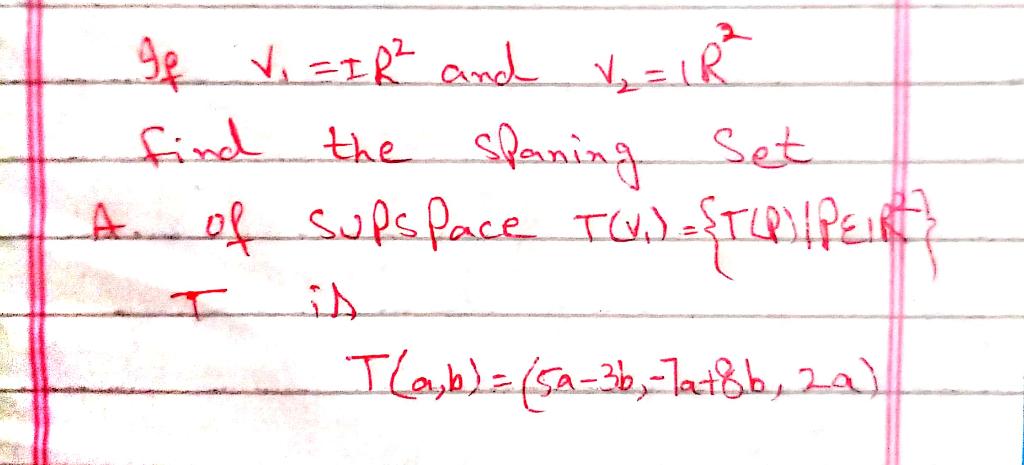 If V₁ = IR² and V₂ = IR²
find the spaning set
A. of supspace T(V₁) = {T(P) | P ∈ IR²}
T is
T(a,b) = (5a-3b, -7a+8b, 2a)